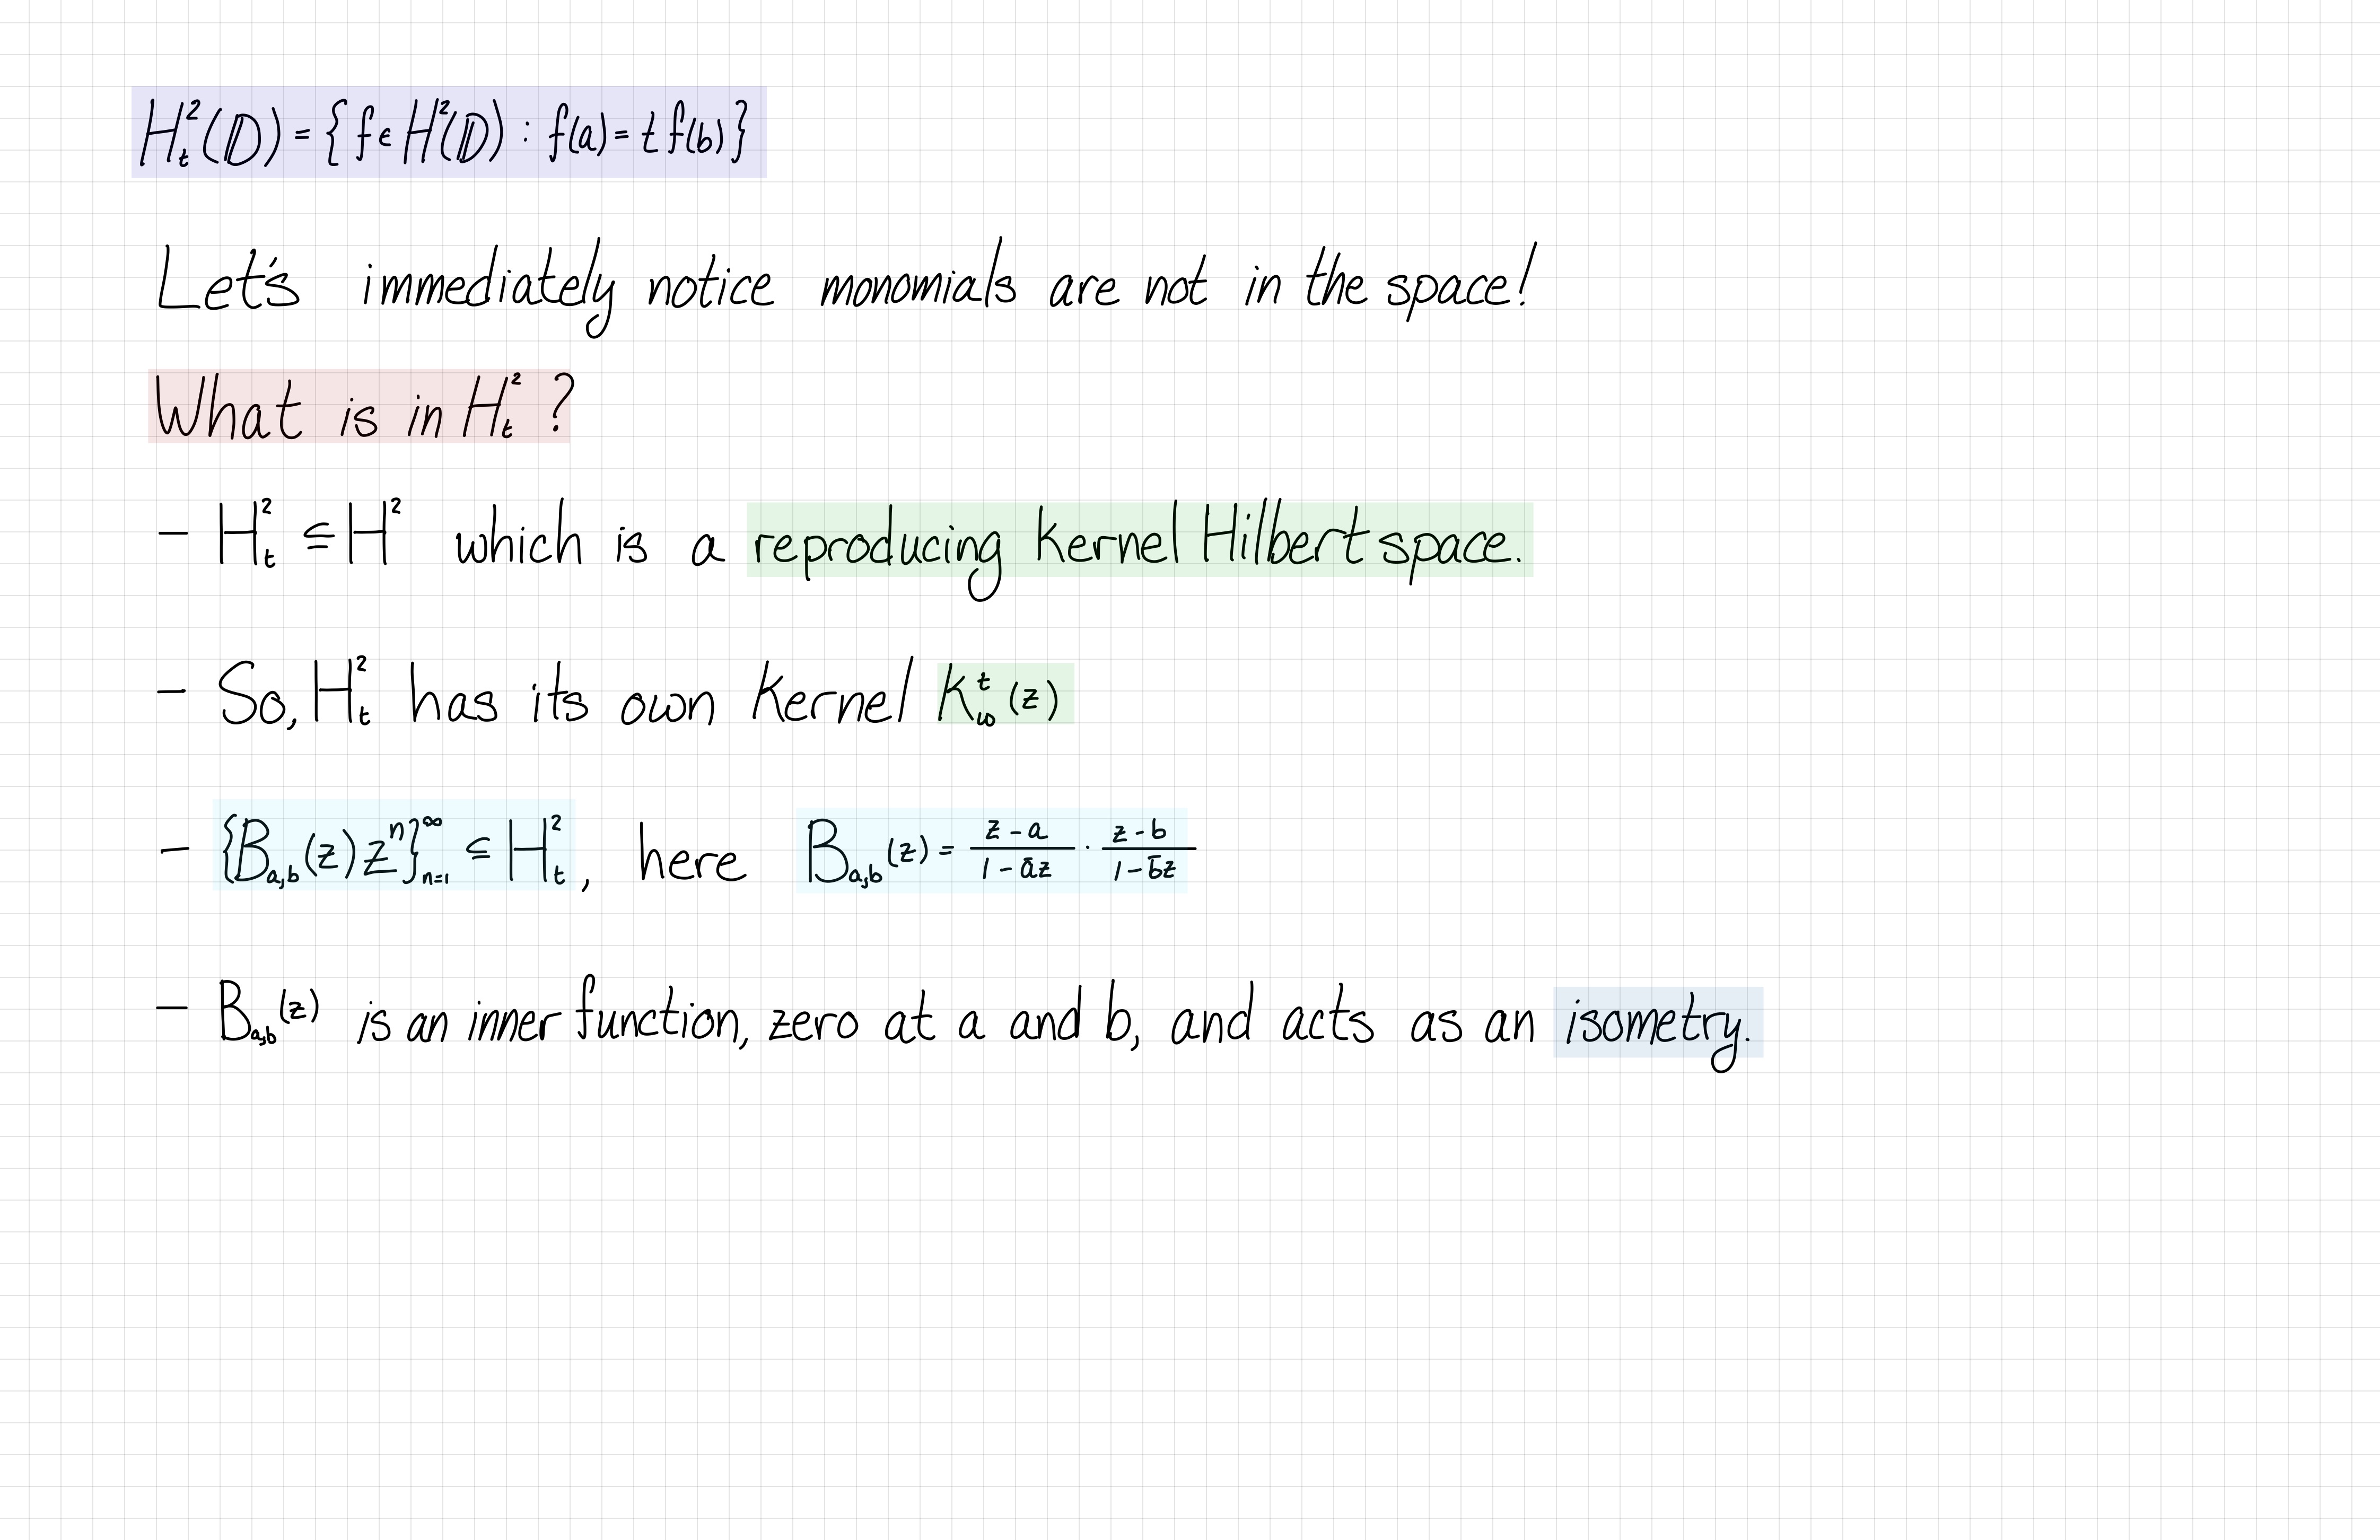 H²ₜ(𝔻) = {f ∈ H²(𝔻) : f(a) = t f(b)}
Let's immediately notice monomials are not in the space!
What is in H²ₜ ?
– H²ₜ ⊆ H² which is a reproducing kernel Hilbert space.
– So, H²ₜ has its own kernel K^t_ω(z)
– {B_{a,b}(z) zⁿ}^∞_{n=1} ⊆ H²ₜ, here B_{a,b}(z) = \frac{z-a}{1-\bar{a}z} · \frac{z-b}{1-\bar{b}z}
– B_{a,b}(z) is an inner function, zero at a and b, and acts as an isometry.